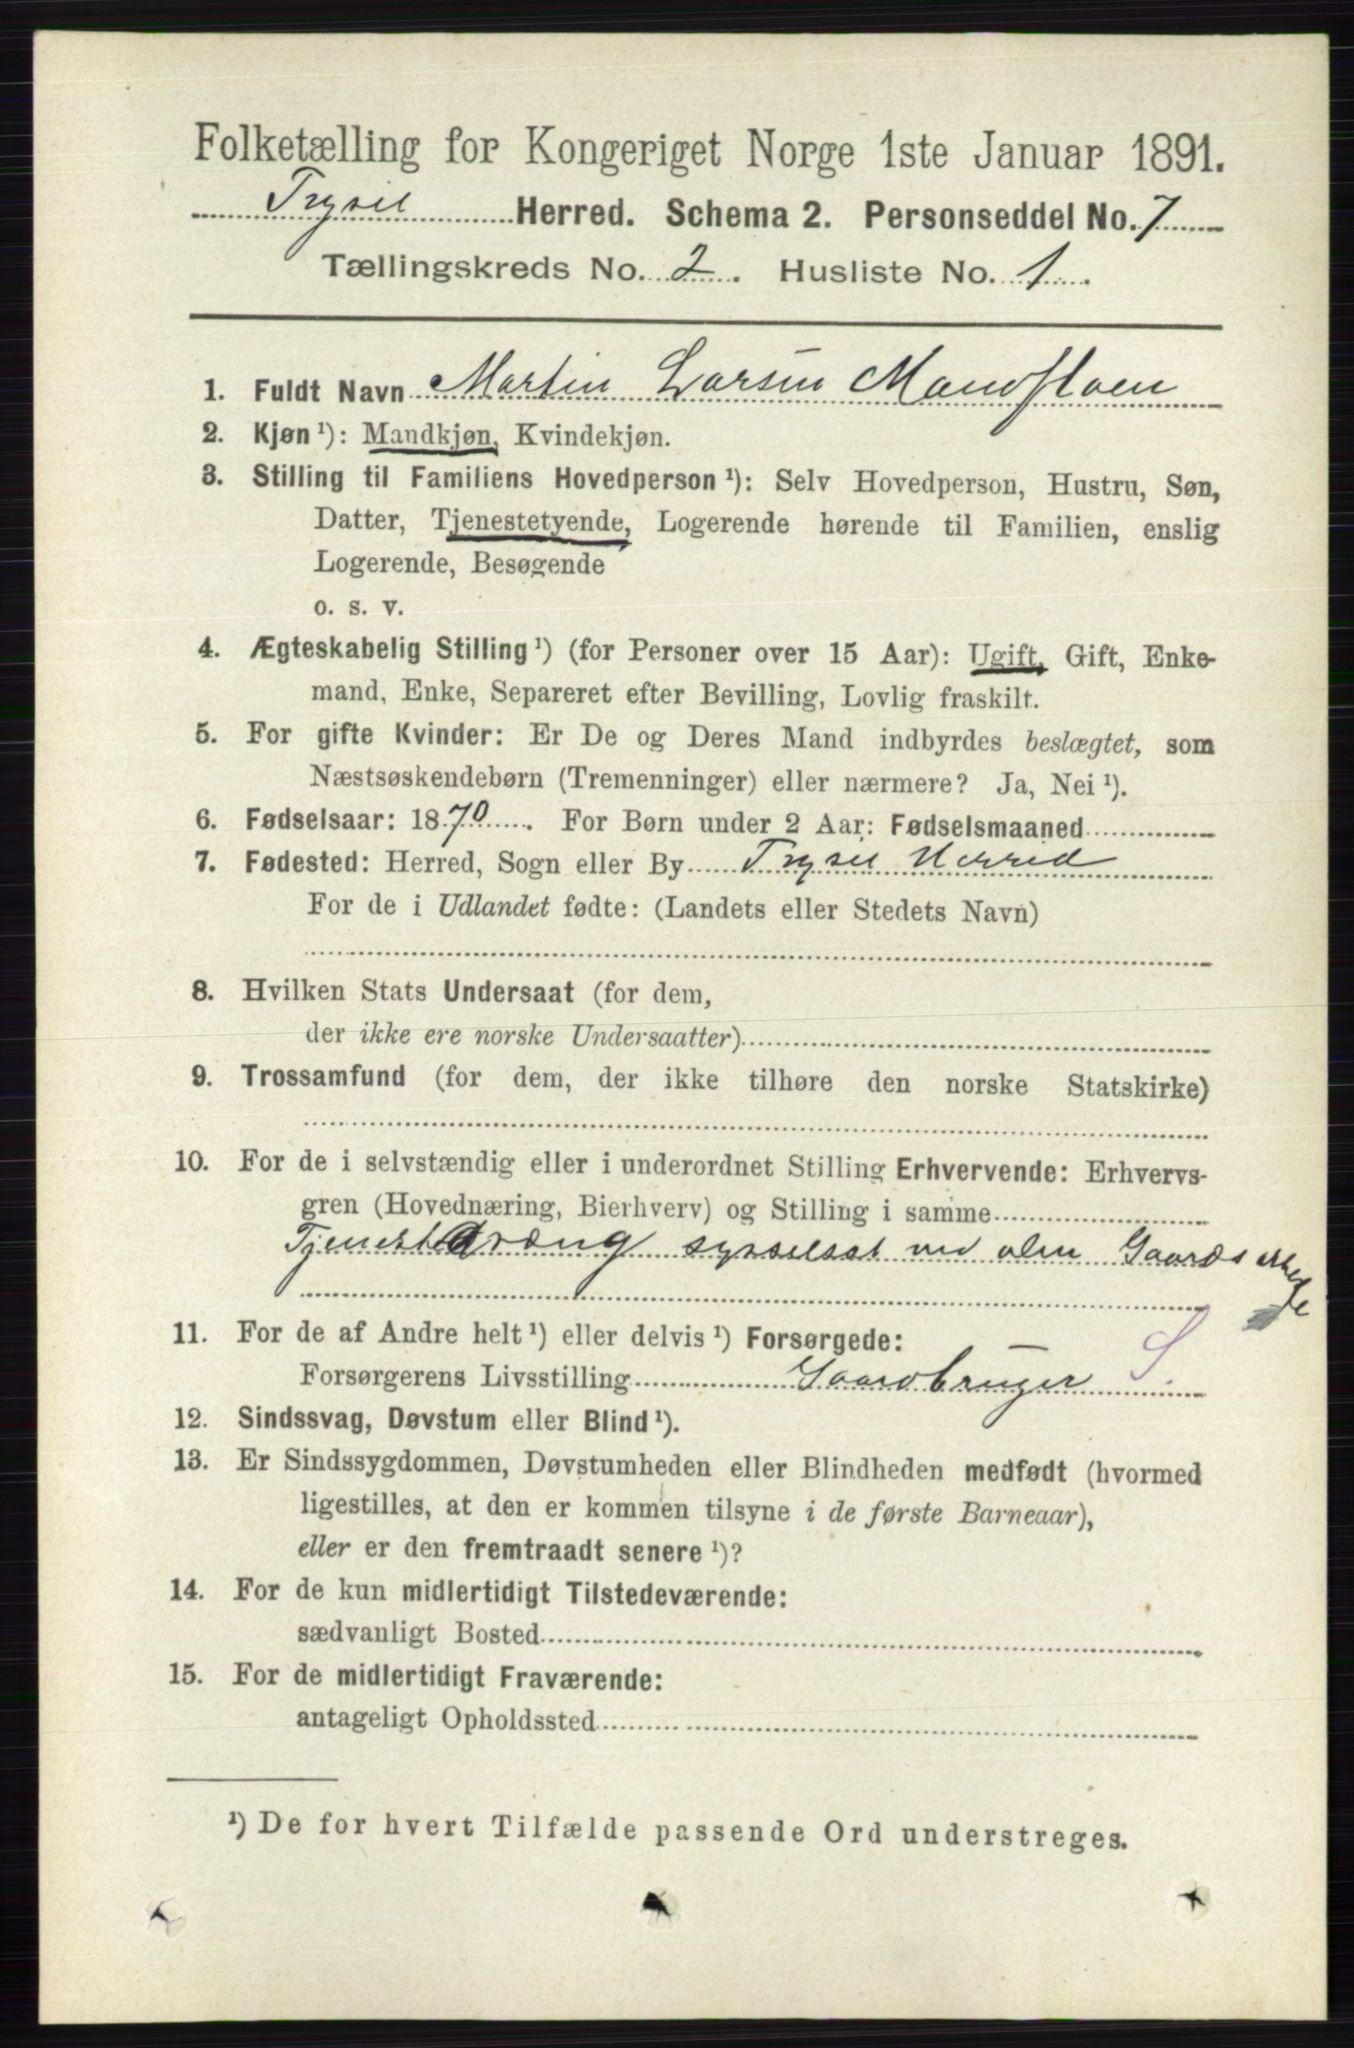 Folketælling for Kongeriget Norge 1ste Januar 1891.
Trysil Herred. Schema 2. Personseddel No. 7
Tællingskreds No. 2. Husliste No. 1.
1. Fuldt Navn Martin Larsen Mandfloen
2. Kjøn ¹): Mandkjøn, Kvindekjøn.
3. Stilling til Familiens Hovedperson ¹): Selv Hovedperson, Hustru, Søn,
Datter, Tjenestetyende, Logerende hørende til Familien, enslig
Logerende, Besøgende
o. s. v.
4. Ægteskabelig Stilling ¹) (for Personer over 15 Aar): Ugift, Gift, Enke-
mand, Enke, Separeret efter Bevilling, Lovlig fraskilt.
5. For gifte Kvinder: Er De og Deres Mand indbyrdes beslægtet, som
Næstsøskendebørn (Tremenninger) eller nærmere? Ja, Nei ¹).
6. Fødselsaar: 1870. For Børn under 2 Aar: Fødselsmaaned
7. Fødested: Herred, Sogn eller By Trysil Herred
For de i Udlandet fødte: (Landets eller Stedets Navn)
8. Hvilken Stats Undersaat (for dem,
der ikke ere norske Undersaatter)
9. Trossamfund (for dem, der ikke tilhøre den norske Statskirke)
10. For de i selvstændig eller i underordnet Stilling Erhvervende: Erhvervs-
gren (Hovednæring, Bierhverv) og Stilling i samme
Tjenestedræng sysselsat ved alm Gaards arbeide
11. For de af Andre helt ¹) eller delvis ¹) Forsørgede:
Forsørgerens Livsstilling Gaardbruger S.
12. Sindssvag, Døvstum eller Blind ¹).
13. Er Sindssygdommen, Døvstumheden eller Blindheden medfødt (hvormed
ligestilles, at den er kommen tilsyne i de første Barneaar),
eller er den fremtraadt senere ¹)?
14. For de kun midlertidigt Tilstedeværende:
sædvanligt Bosted
15. For de midlertidigt Fraværende:
antageligt Opholdssted
¹) De for hvert Tilfælde passende Ord understreges.